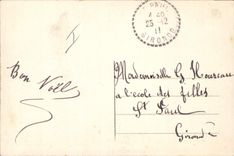 PAUL
4 40
25 - 12
11
GIRONDE
Bon Noël
Mademoiselle G. Housseau
à l'école des filles
St Paul
Gironde